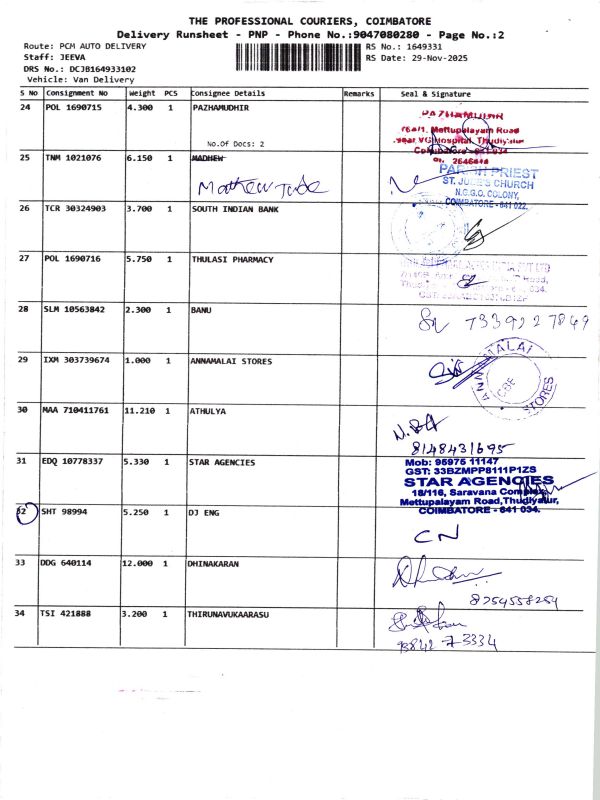 THE PROFESSIONAL COURIERS, COIMBATORE
Delivery Runsheet - PNP - Phone No.:9047080280 - Page No.:2
Route: PCM AUTO DELIVERY
RS No.: 1649331
Staff: JEEVA
RS Date: 29-Nov-2025
DRS No.: DCJB164933102
Vehicle: Van Delivery
S No Consignment No Weight PCS Consignee Details Remarks Seal & Signature
24 POL 1690715 4.300 1 PAZHAMUDHIR
No.Of Docs: 2
Mettupalayam Road
25 TNM 1021076 6.150 1 MADHEW
Mathew
PARISH PRIEST
ST. JUDE'S CHURCH
N.G.G.O. COLONY,
COIMBATORE - 641 022.
26 TCR 30324903 3.700 1 SOUTH INDIAN BANK
27 POL 1690716 5.750 1 THULASI PHARMACY
28 SLM 10563842 2.300 1 BANU
7339227849
29 IXM 303739674 1.000 1 ANNAMALAI STORES
ANNAMALAI STORES
CBE
30 MAA 710411761 11.210 1 ATHULYA
8148431695
31 EDQ 10778337 5.330 1 STAR AGENCIES
Mob: 95975 11147
GST: 33BZMPP8111P1ZS
STAR AGENCIES
18/116, Saravana Complex,
Mettupalayam Road, Thudiyalur,
COIMBATORE - 641 034.
32 SHT 98994 5.250 1 DJ ENG
CN
33 DDG 640114 12.000 1 DHINAKARAN
8754558254
34 TSI 421888 3.200 1 THIRUNAVUKAARASU
98842 73334